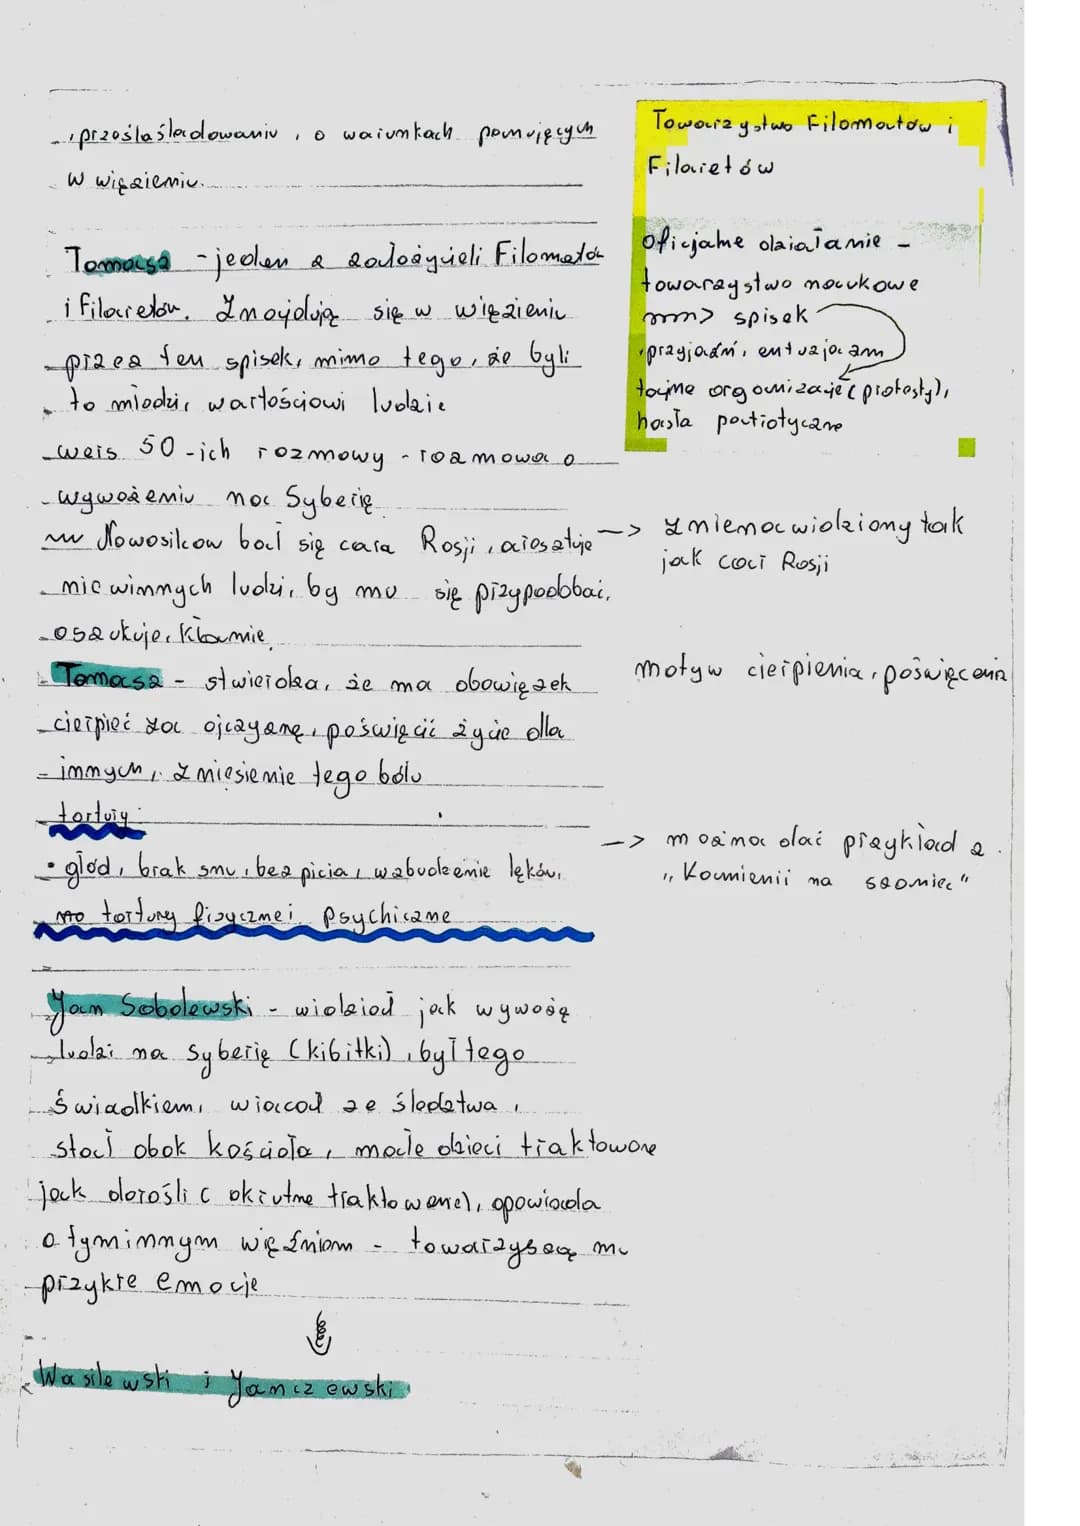 , prześlaśladowaniu, o warunkach panujących
w więzieniu.
Tomasz - jeden z założycieli Filomatów
i filaretów. Znajdują się w więzieniu
przez ten spisek, mimo tego, że byli
to młodzi, wartościowi ludzie
wers 50-ich rozmowy - rozmowa o
wywożeniu na Syberię
Nowosilcow bał się cara Rosji, aresztuje
niewinnych ludzi, by mu się przypodobać,
oszukuje, kłamie
Tomasz - stwierdza, że ma obowiązek
cierpieć za ojczyznę, poświęcić życie dla
innych, zniesienie tego bólu
tortury:
• głód, brak snu, bez picia, wzbudzenie lęków,
tortury fizyczne i psychiczne
Jan Sobolewski - widział jak wywożą
ludzi na Syberię (kibitki), był tego
świadkiem, wracał ze śledztwa,
stał obok kościoła, małe dzieci traktowane
jak dorośli (okrutne traktowanie), opowiada
o tym innym więźniom - towarzyszą mu
przykre emocje
Wasilewski i Janczewski
Towarzystwo Filomatów i
Filaretów
oficjalne działanie -
towarzystwo naukowe
> spisek
przyjaźń, entuzjazm
tajne organizacje (protesty),
hasła patriotyczne
-> znienawidziony tak
jak car Rosji
motyw cierpienia, poświęcenia
-> można dać przykład z
"Kamienii na szaniec"